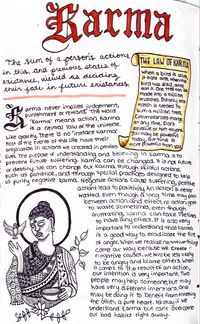 Karma
The sum of a person's actions
in this, and previous states of
existence, viewed as deciding
their fate in future existences.
THE LAW OF KARMA
When a bird is alive,
it eats ants. When the
bird has died, ants
eat it. One tree can be
made into a million
matches. But only one
match is needed to
burn a million trees.
Circumstances change
at any time. Don't
devalue or hurt anyone.
You may be powerful
today, but time is
more powerful than you.
Karma never implies judgement,
punishment or reward. The word
"Karma" means action, Karma
is a neutral law of the universe.
Like gravity, there is no 'instant karma'
Most of the events of this life have their
origination in actions we created in previous
lives. The purpose of understanding and believing in karma is to
prevent future suffering. Karma can be changed. If our future
or destiny, we can change our karma through virtuous actions,
such as patience, and through special practices designed to help
us purify negative karma. Negative actions cause suffering, positive
actions lead to positivity. An action is never
wasted, even though a long time may pass
between action and effect, no action goes
to waste. Sometimes, even though
karma can take lifetimes
to have any effect. It is also very
important to understand that karma
is a way to eradicate the root
of anger. When we realise negative things
come our way because we create
negative causes, we might be less likely
to be angry and blame others. When
it comes to the result of an action,
our intention is very important. Two
people may help someone, but may
have very different intentions. One
may be doing it to benefit from it. The
other, a pure heart. Its key if we
understand karma, but can't overcome
our bad habits right away.